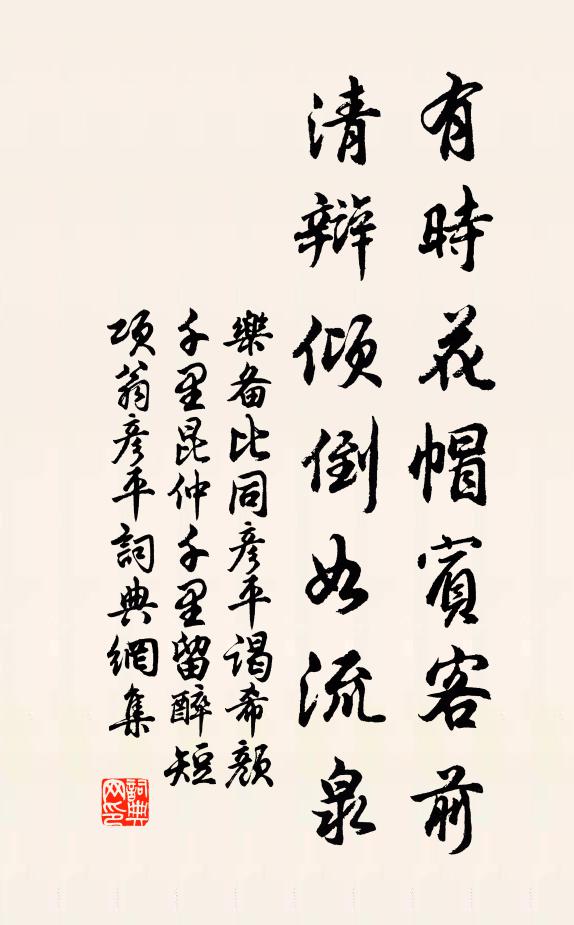 有時花帽賓客前
清辯傾倒如流泉
樂备比同彦平謁希顔
千里昆仲千里留醉短
項翁彦平詞典網集
詞典网印